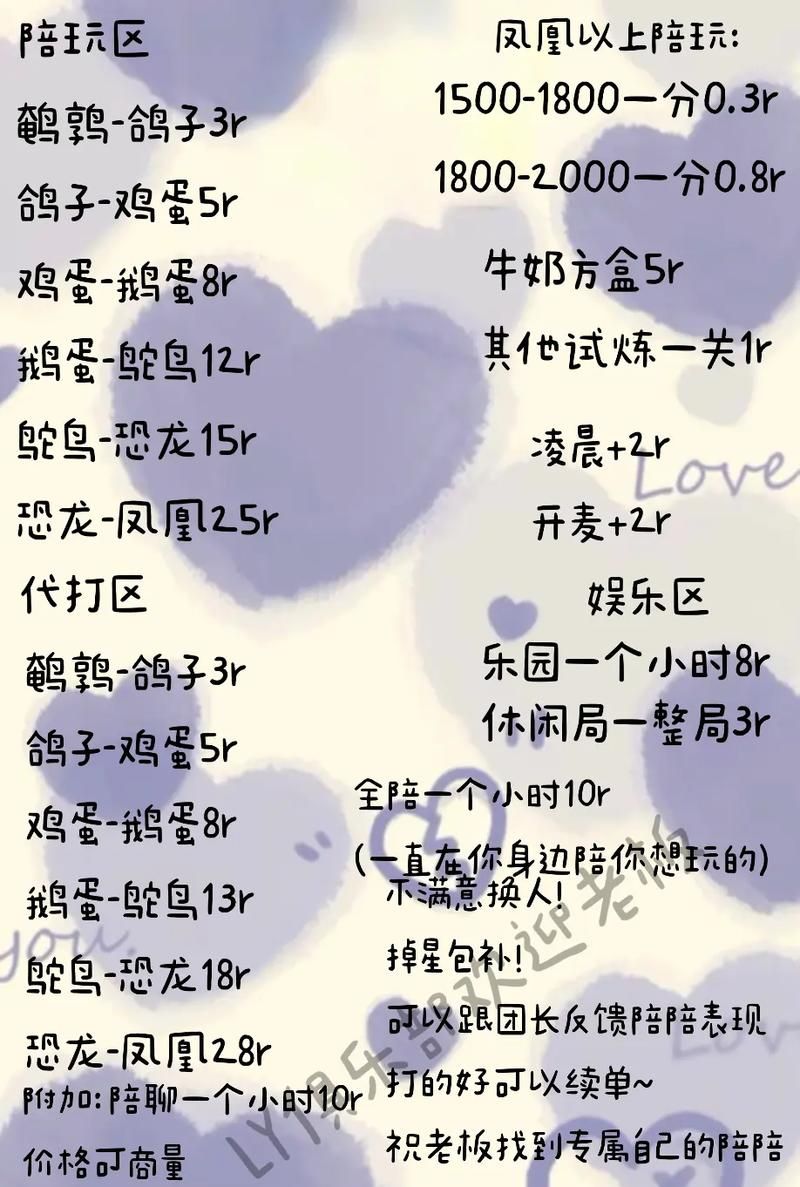 陪玩区
鹌鹑-鸽子3r
鸽子-鸡蛋5r
鸡蛋-鹅蛋8r
鹅蛋-鸵鸟12r
鸵鸟-恐龙15r
恐龙-凤凰25r
代打区
鹌鹑-鸽子3r
鸽子-鸡蛋5r
鸡蛋-鹅蛋8r
鹅蛋-鸵鸟13r
鸵鸟-恐龙18r
恐龙-凤凰28r
附加:陪聊一个小时10r
价格可商量
凤凰以上陪玩:
1500-1800一分0.3r
1800-2000一分0.8r
牛奶方盒5r
其他试炼一关1r
凌晨+2r
开麦+2r
娱乐区
乐园一个小时8r
休闲局一整局3r
全陪一个小时10r
(一直在你身边陪你想玩的)
不满意换人!
掉星包补!
可以跟团长反馈陪陪表现
打的好可以续单~
祝老板找到专属自己的陪陪
LY俱乐部欢迎老板
Love
you.
Love